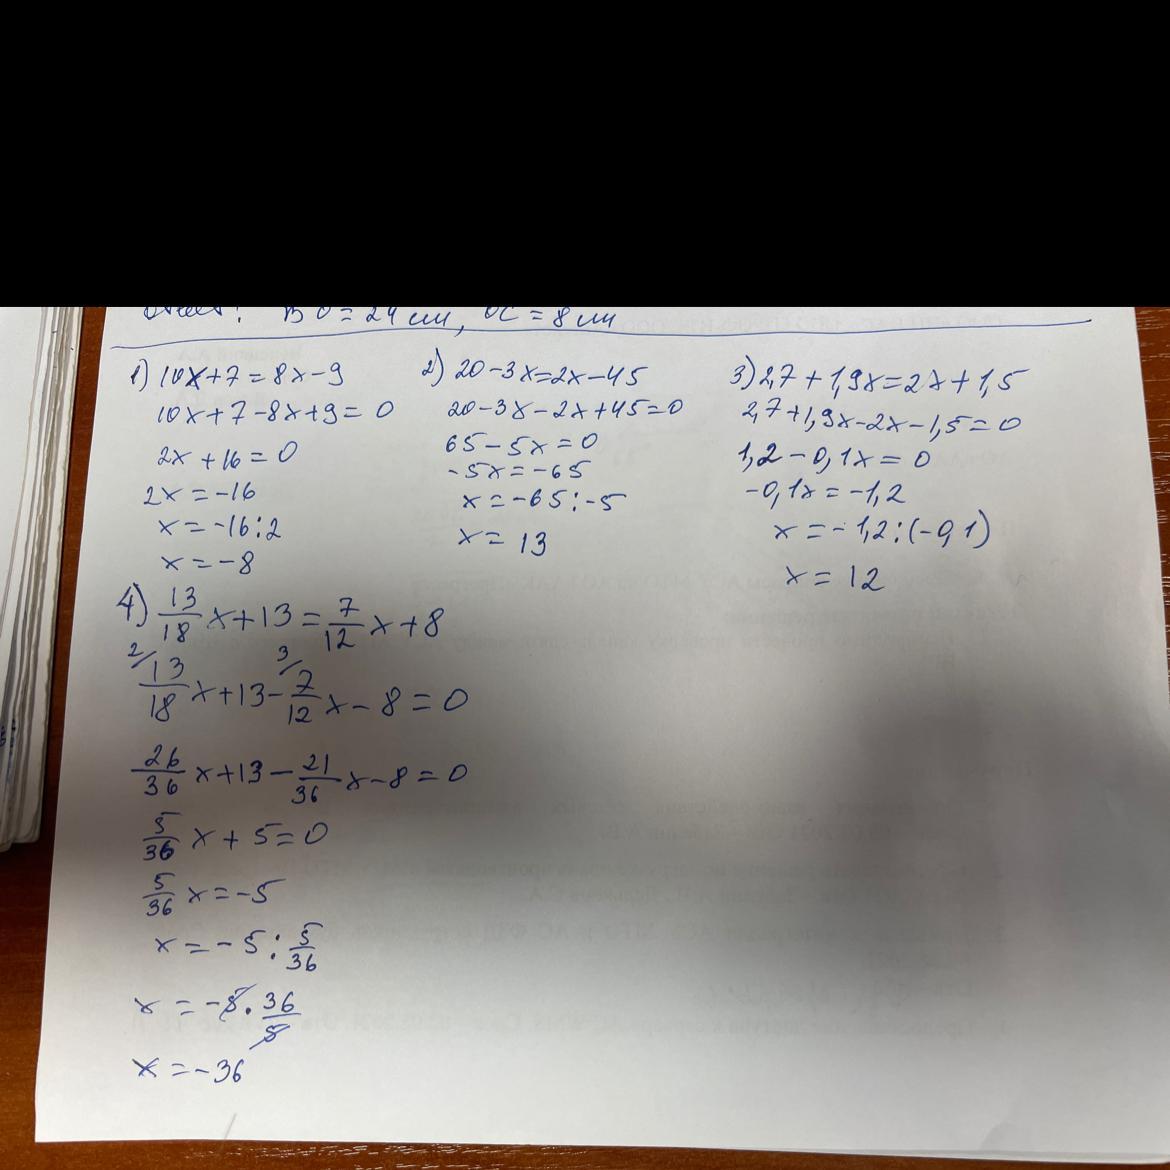 Ответ: ВО = 24 см, ОС = 8 см
1) 10x+7=8x-9
10x+7-8x+9=0
2x+16=0
2x=-16
x=-16:2
x=-8
2) 20-3x=2x-45
20-3x-2x+45=0
65-5x=0
-5x=-65
x=-65:-5
x=13
3) 2,7+1,9x=2x+1,5
2,7+1,9x-2x-1,5=0
1,2-0,1x=0
-0,1x=-1,2
x=-1,2:(-0,1)
x=12
4) 13/18 x+13=7/12 x+8
2/ 13/18 x+13- 3/ 7/12 x-8=0
26/36 x+13-21/36 x-8=0
5/36 x+5=0
5/36 x=-5
x=-5:5/36
x=-5·36/5
x=-36